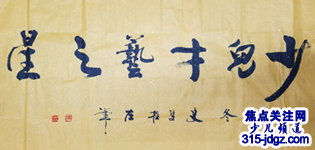 少兒才藝之星
焦点关注网
少儿频道
315-jdgz.com